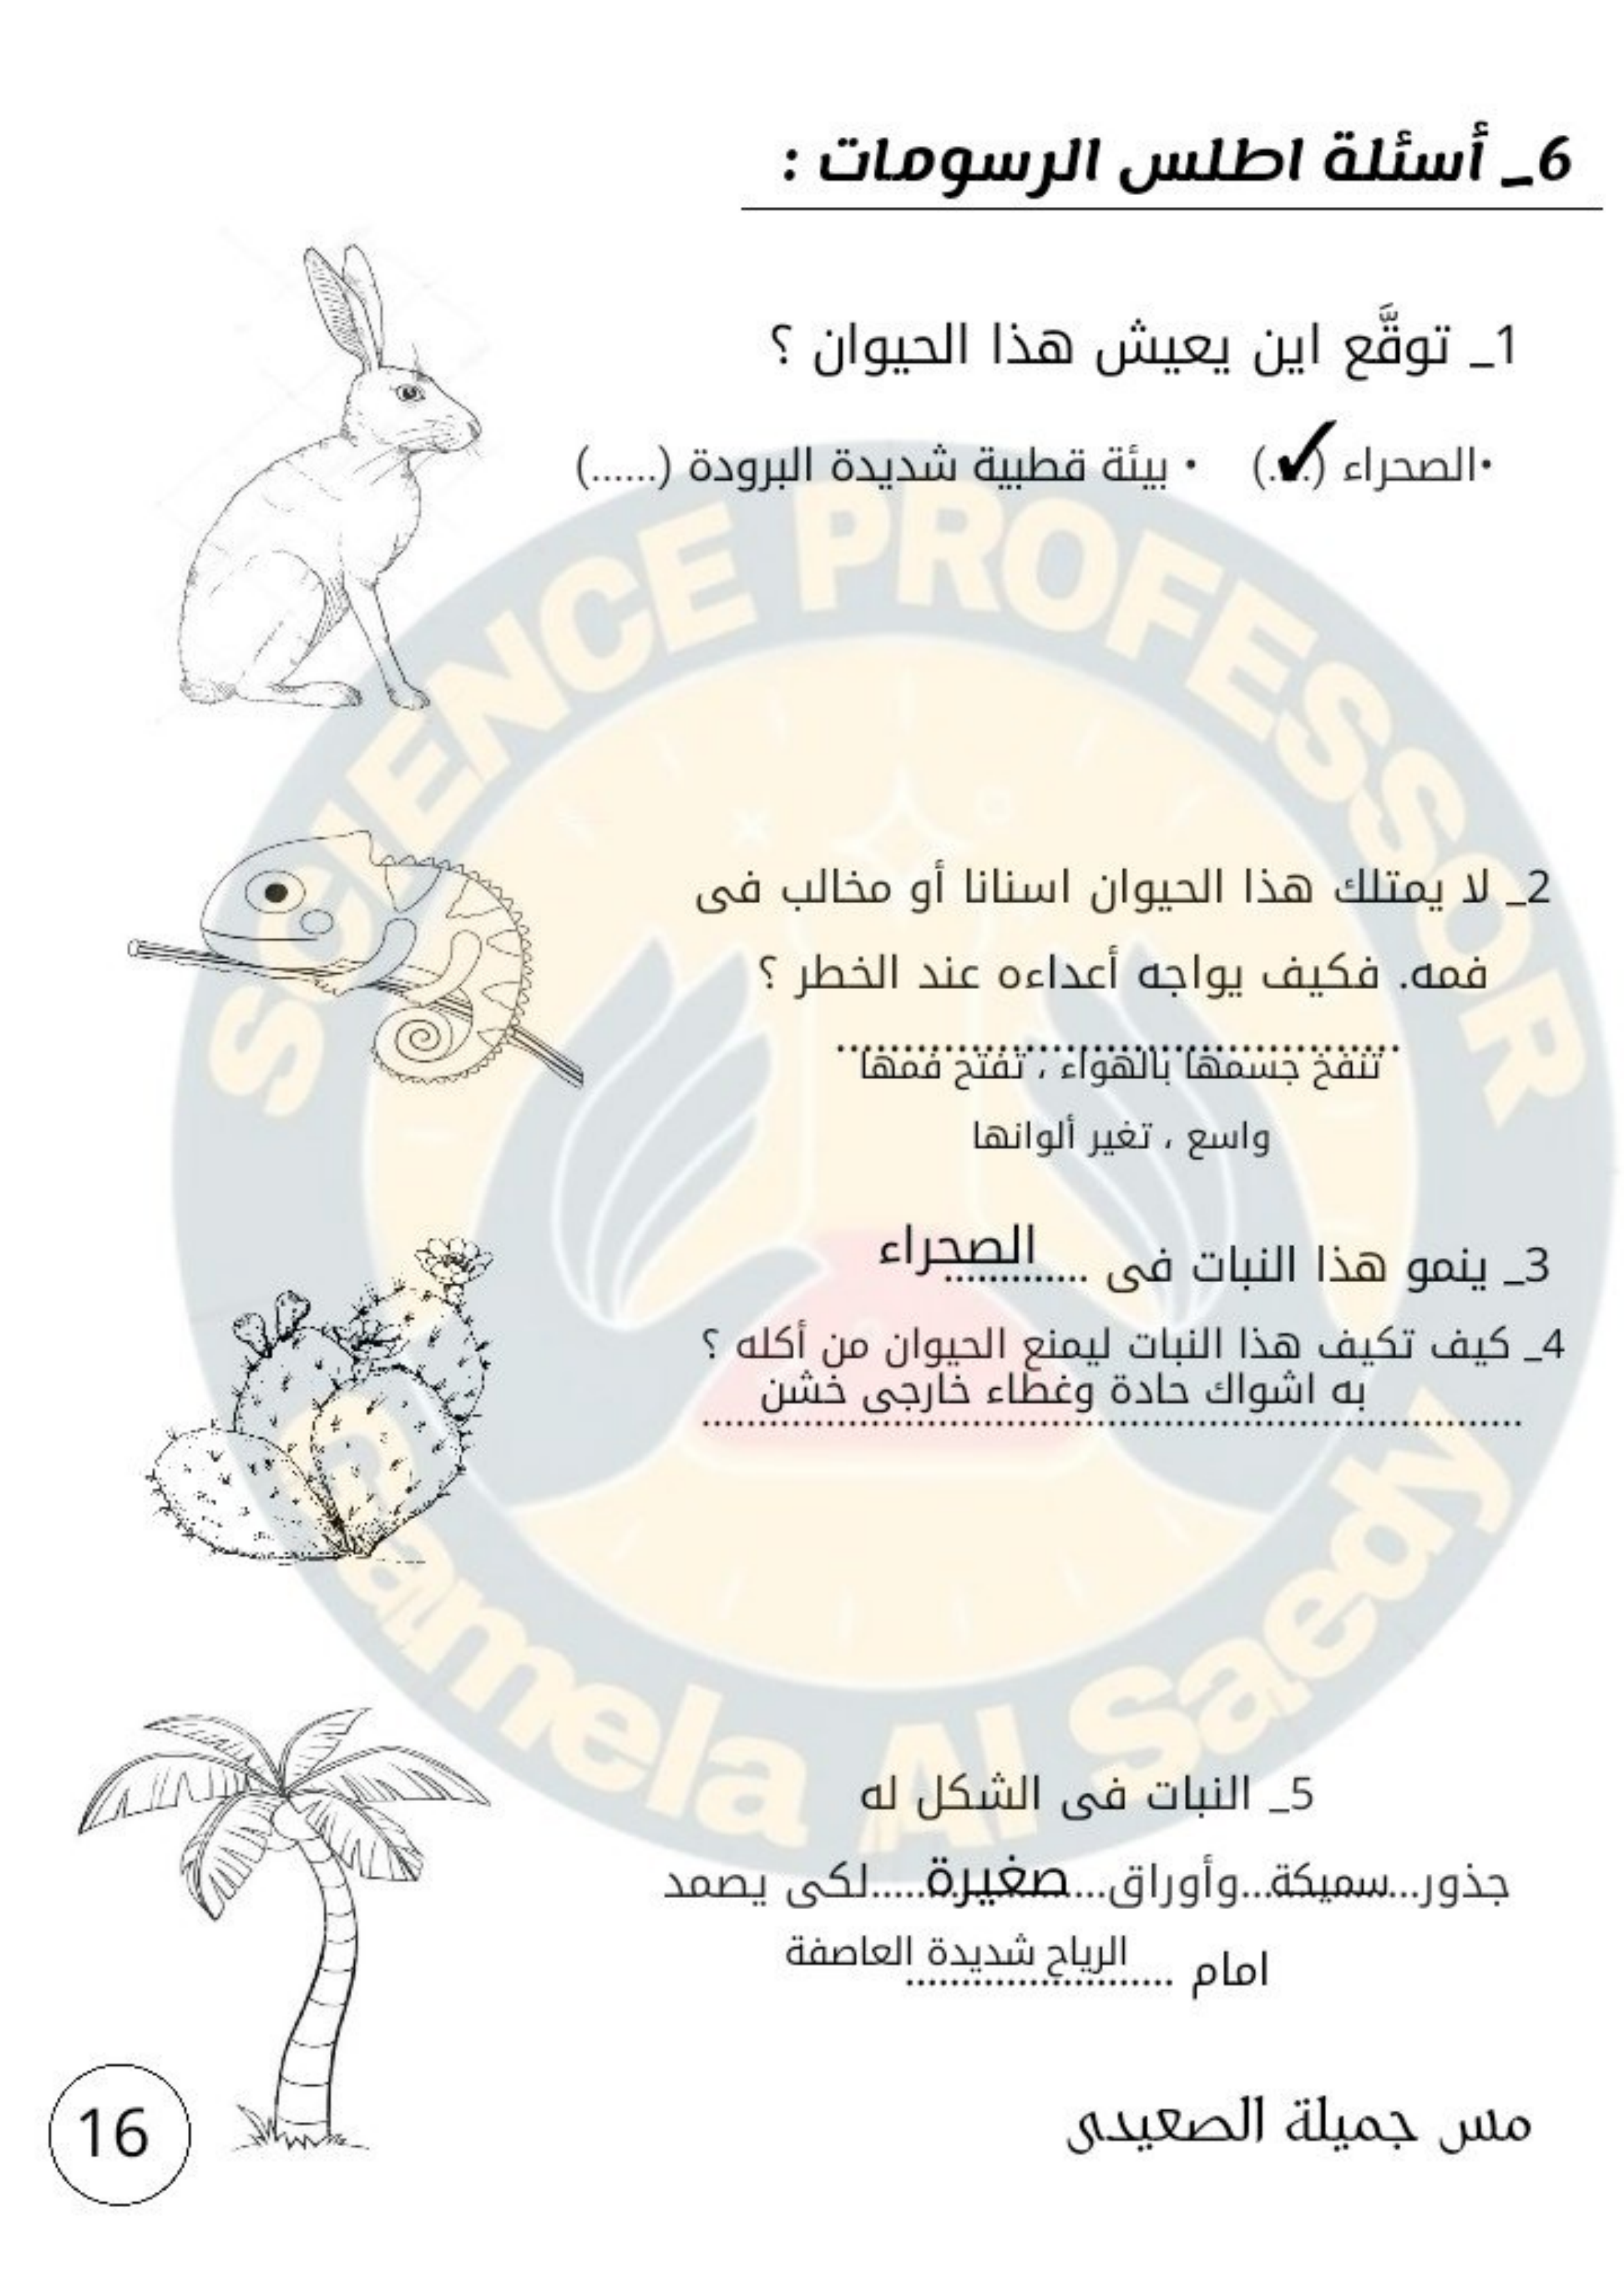 6_ أسئلة اطلس الرسومات :
1_ توقَّع اين يعيش هذا الحيوان ؟
•الصحراء (.✓.) • بيئة قطبية شديدة البرودة (......)
2_ لا يمتلك هذا الحيوان اسنانا أو مخالب فى
فمه. فكيف يواجه أعداءه عند الخطر ؟
..........................................
تنفخ جسمها بالهواء ، تفتح فمها
واسع ، تغير ألوانها
3_ ينمو هذا النبات فى ............ الصحراء
4_ كيف تكيف هذا النبات ليمنع الحيوان من أكله ؟
به اشواك حادة وغطاء خارجى خشن
..........................................................................
5_ النبات فى الشكل له
جذور...سميكة...وأوراق...صغيرة.....لكى يصمد
امام ........................ الرياح شديدة العاصفة
مس جميلة الصعيدى
16
SCIENCE PROFESSOR
Gamela Al Saedy